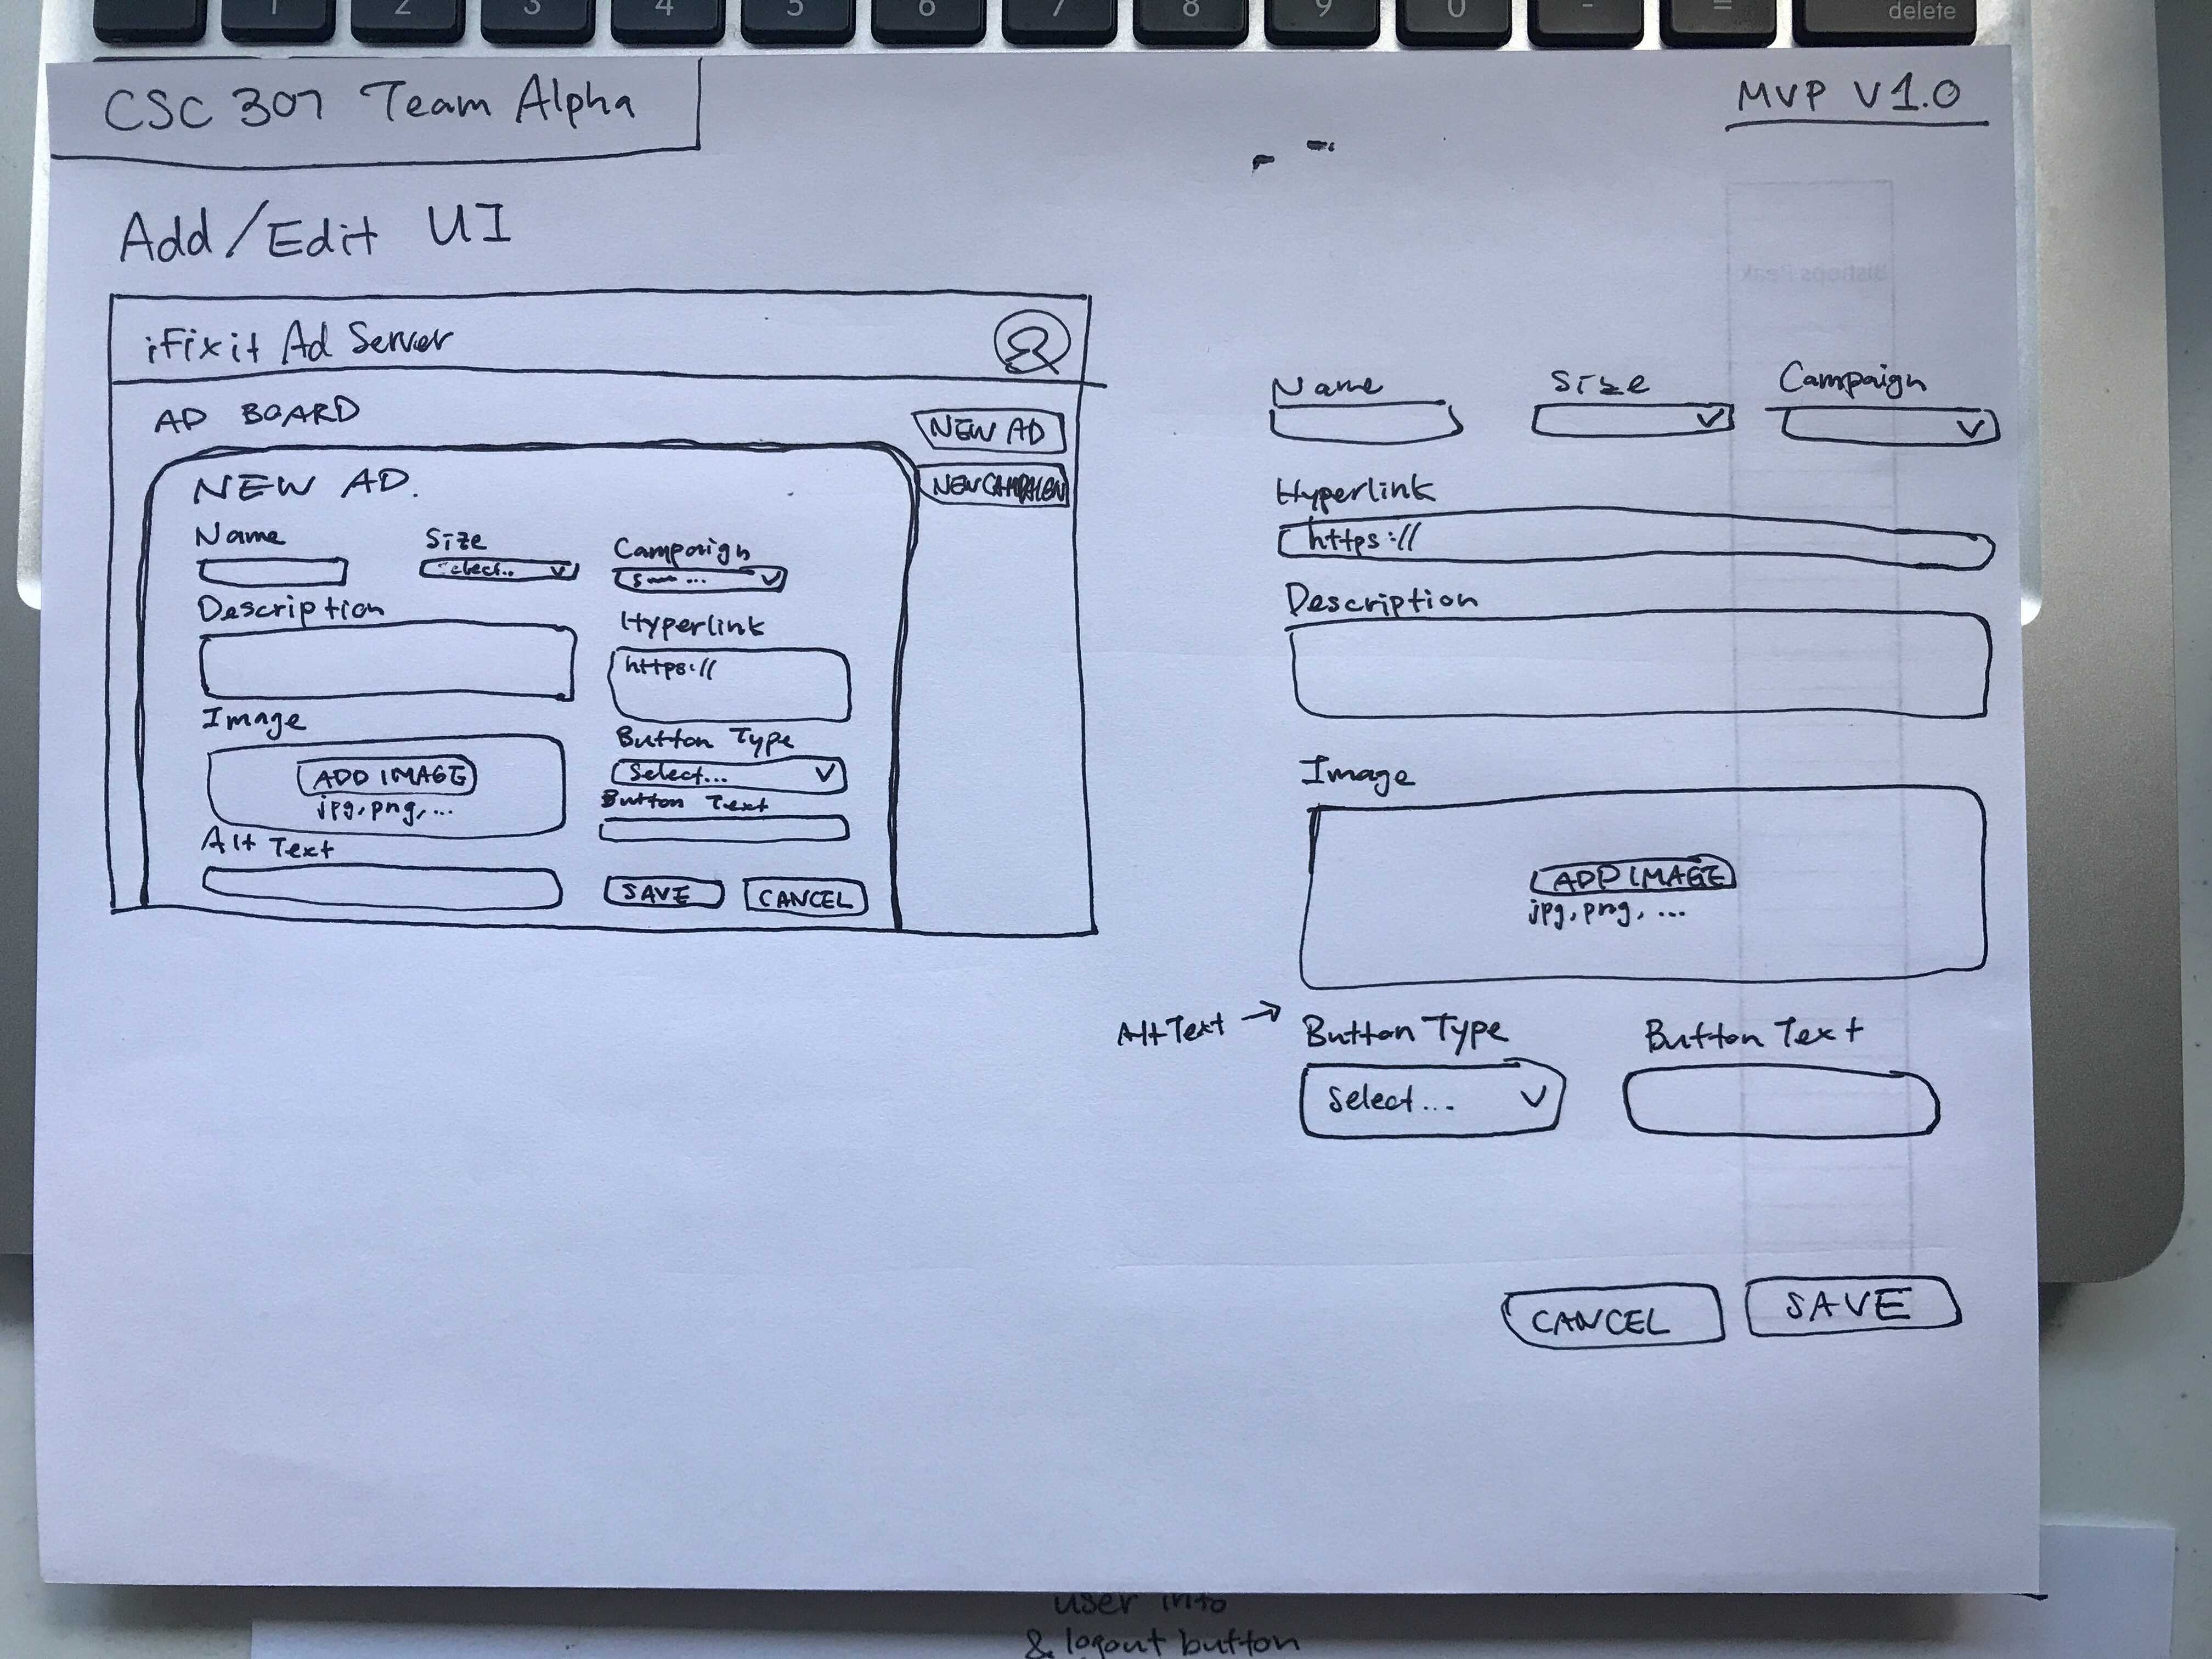 1 2 3 4 5 6 7 8 9 0 - = delete
CSC 307 Team Alpha
MVP V1.0
Add/Edit UI
iFixit Ad Server
AD BOARD
NEW AD
NEW CAMPAIGN
NEW AD.
Name Size Campaign
Select...
Description
Hyperlink
https://
Image
ADD IMAGE
jpg, png, ...
Button Type
Select...
Button Text
Alt Text
SAVE CANCEL
Name Size Campaign
Hyperlink
https://
Description
Image
ADD IMAGE
jpg, png, ...
Alt Text → Button Type Button Text
Select...
CANCEL SAVE
Bishops Peak
user info
& logout button